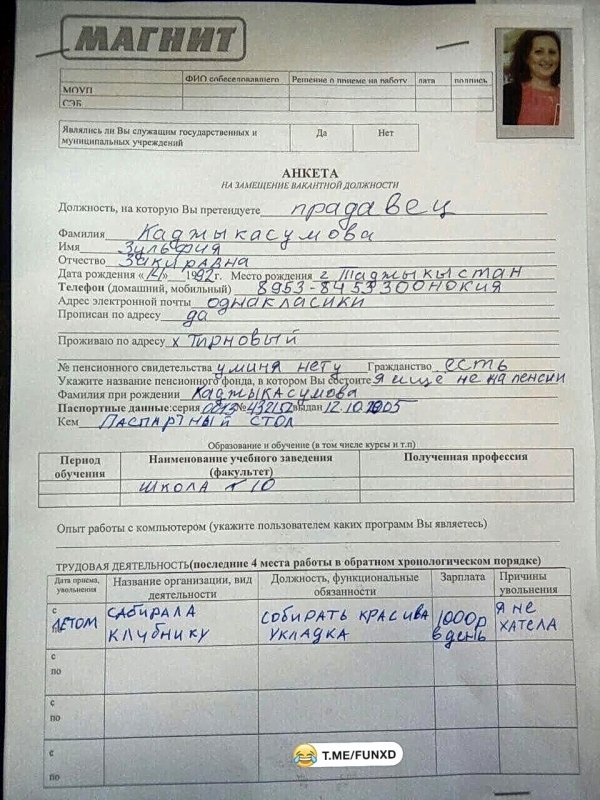 МАГНИТ
ФИО собеседовавшего Решение о приеме на работу дата подпись
МОУП
СЭБ
Являлись ли Вы служащим государственных и муниципальных учреждений Да Нет
АНКЕТА
НА ЗАМЕЩЕНИЕ ВАКАНТНОЙ ДОЛЖНОСТИ
Должность, на которую Вы претендуете прадавец
Фамилия Каджыкасумова
Имя Зульфия
Отчество Закиравна
Дата рождения «14» 1992 г. Место рождения г Таджыкыстан
Телефон (домашний, мобильный) 8953-8453300нокия
Адрес электронной почты однакласики
Прописан по адресу да
Проживаю по адресу х Тирновый
№ пенсионного свидетельства уминя нету Гражданство есть
Укажите название пенсионного фонда, в котором Вы состоите я ище не на пенсии
Фамилия при рождении Каджыкасумова
Паспортные данные: серия № 432152 выдан 12.10.2005
Кем Паспартный стол
Образование и обучение (в том числе курсы и т.п)
Период обучения Наименование учебного заведения (факультет) Полученная профессия
школа г 10
Опыт работы с компьютером (укажите пользователем каких программ Вы являетесь)
ТРУДОВАЯ ДЕЯТЕЛЬНОСТЬ(последние 4 места работы в обратном хронологическом порядке)
Дата приема, увольнения Название организации, вид деятельности Должность, функциональные обязанности Зарплата Причины увольнения
с летом сабирала клубнику собирать красива укладка 1000р в день я не хатела
с
по
с
по
с
по
T.ME/FUNXD